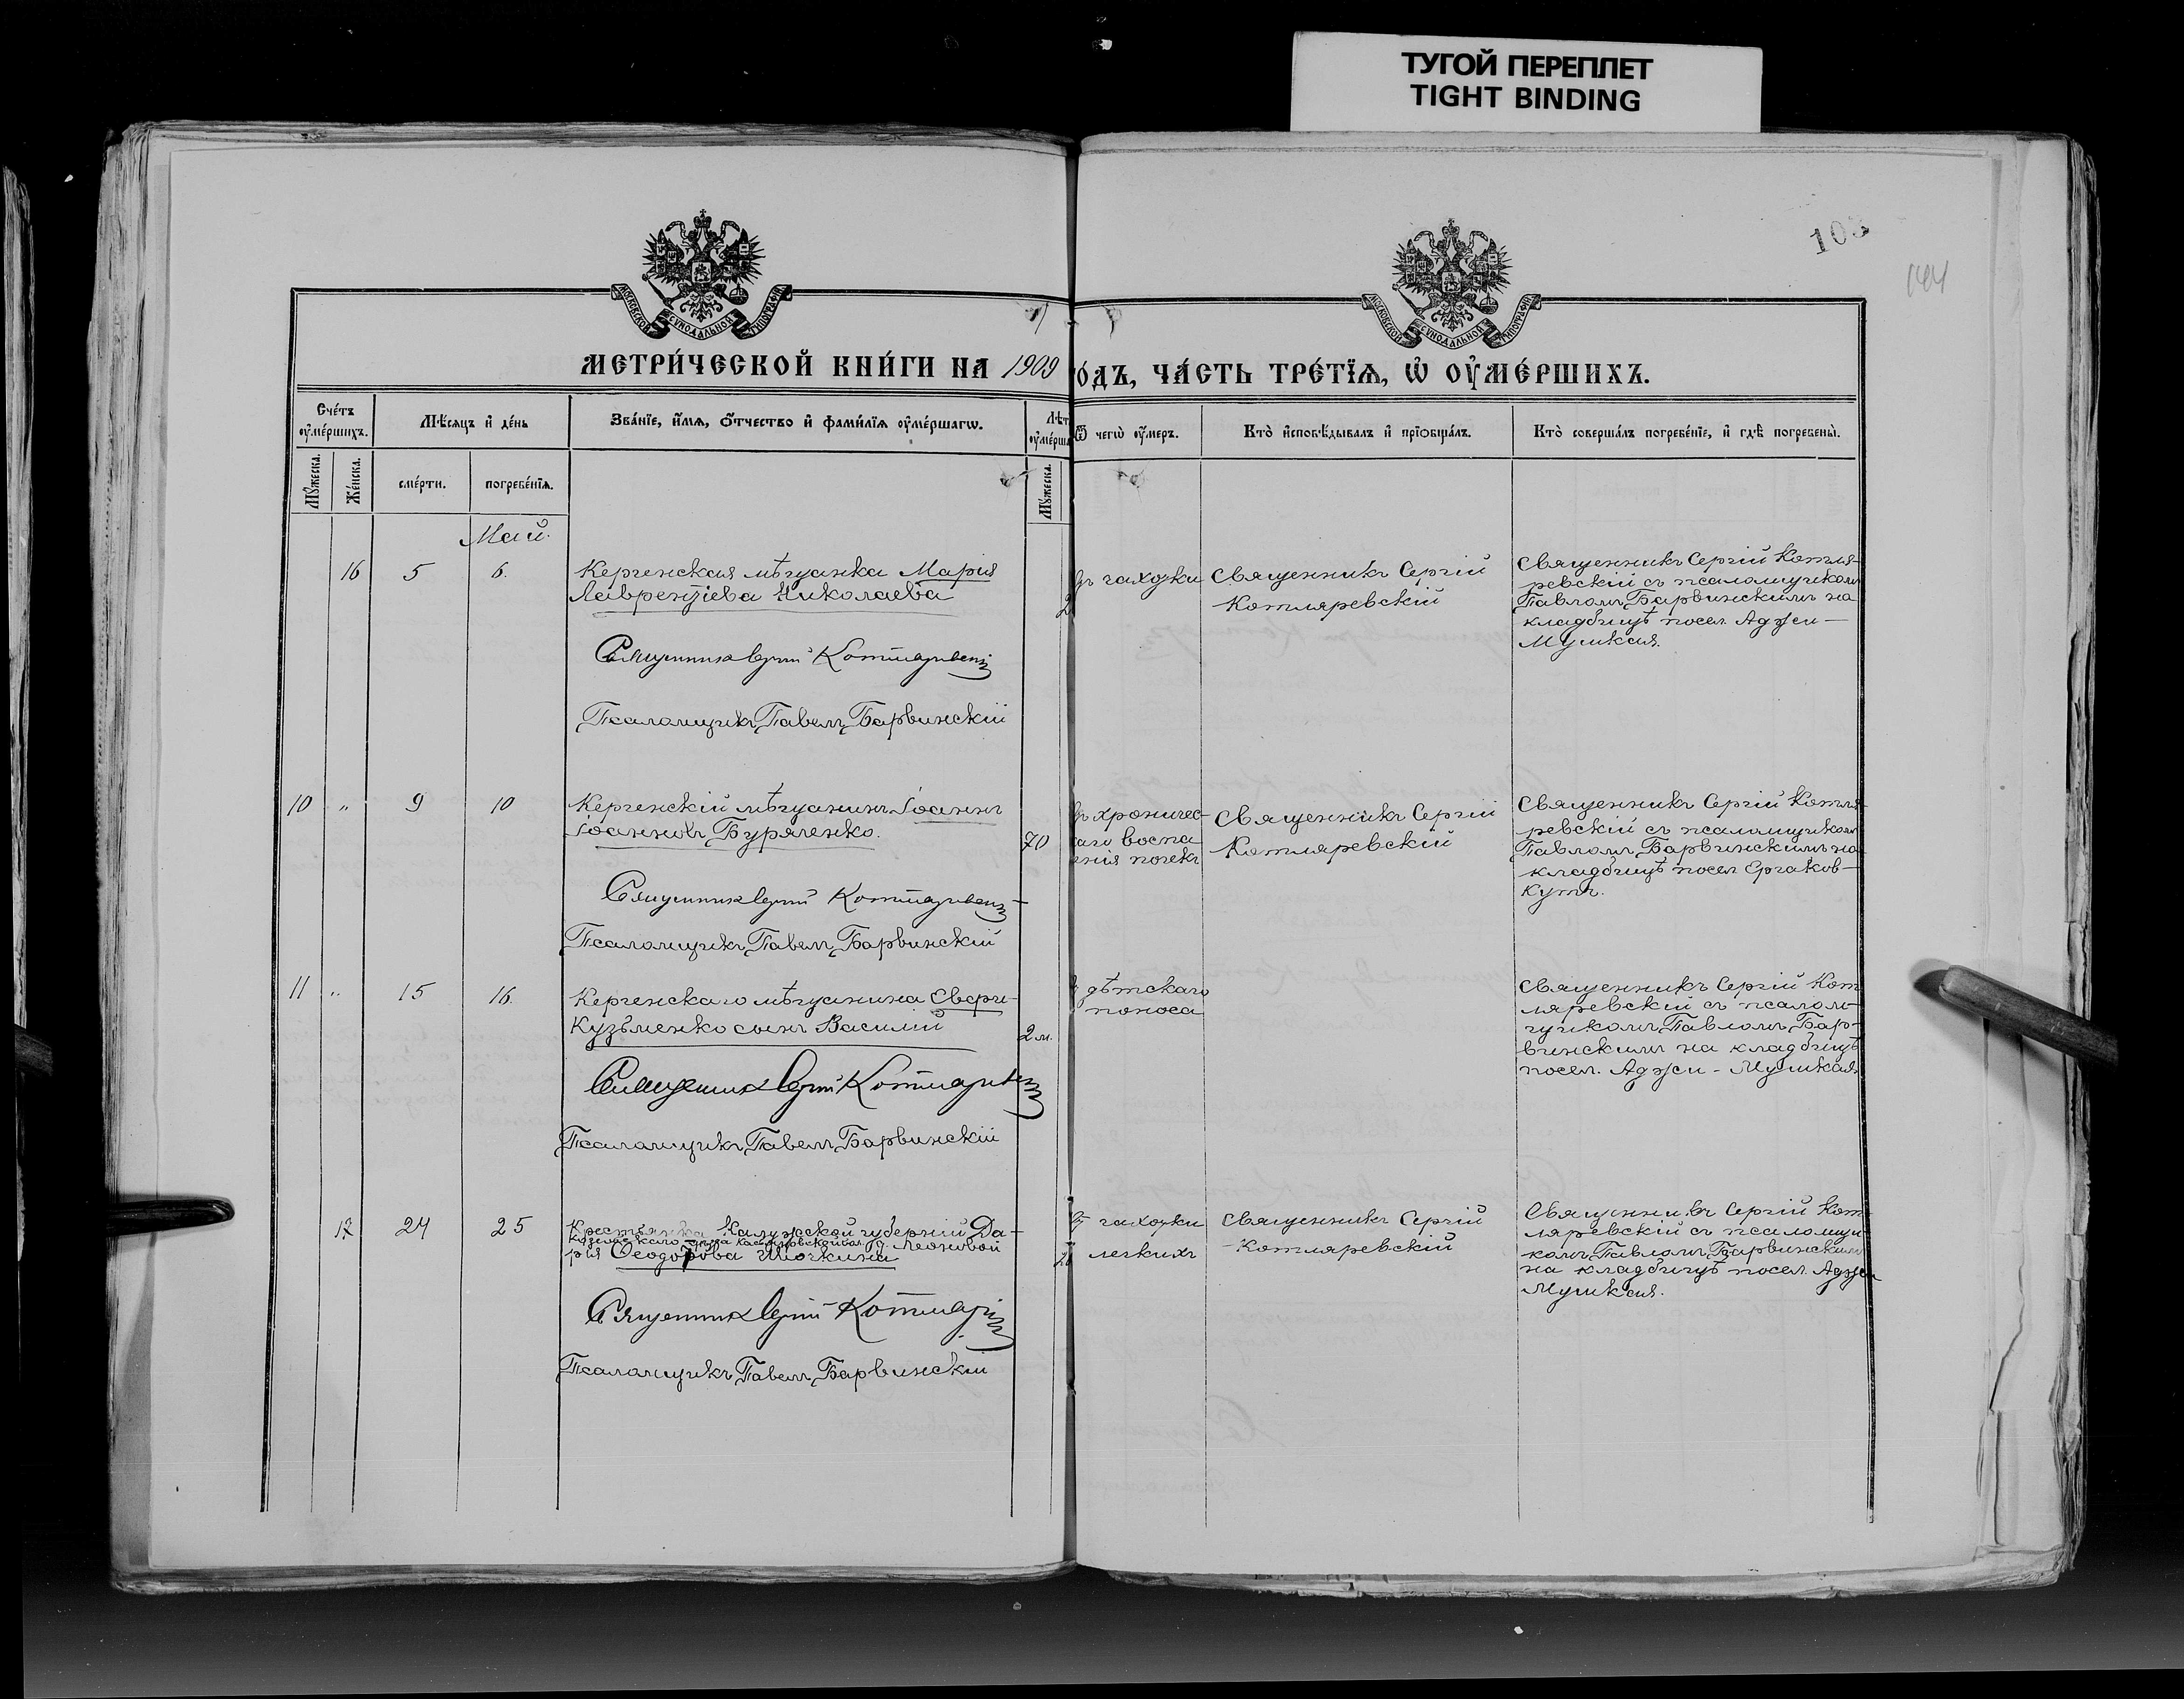 ТУГОЙ ПЕРЕПЛЕТ
TIGHT BINDING
103
144
МОСКОВСКОЙ СУНОДАЛЬНОЙ ТИПОГРАФІИ
МОСКОВСКОЙ СУНОДАЛЬНОЙ ТИПОГРАФІИ
МЕТРИ́ЧЕСКОЙ КНИ́ГИ НА 1909
О́ДЪ, ЧА́СТЬ ТРЕ́ТЇѦ, Ѡ҆ ОУ҆МЕ́РШИХЪ.
Сче́тъ оу҆ме́ршихъ.
Мѣ́сяцъ и҆ де́нь
Зва́нїе, и҆́мѧ, ѻ҆́тчество и҆ фами́лїѧ оу҆ме́ршагѡ.
Лѣт
оу҆ме́рша
Ѿ чегѡ̀ оу҆́меръ.
Кто̀ и҆сповѣ́дывалъ и҆ прїѡбща́лъ.
Кто̀ соверша́лъ погребе́нїе, и҆ гдѣ̀ погребены̀.
Мꙋ́жеска.
Же́нска.
сме́рти.
погребе́нїѧ.
Мꙋ́жеска.
Май.
16 5 6.
Керченская мѣщанка Марія
Лаврентіева Николаева
Священникъ Сергій Котляревскій
Псаломщикъ Павелъ Барвинскій
2
ъ чахотки
Священникъ Сергій
Котляревскій
Священникъ Сергій Котля-
ревскій съ псаломщикомъ
Павломъ Барвинскимъ на
кладбищѣ посел. Аджи-
Мушкая.
10 " 9 10
Керченскій мѣщанинъ Іоаннъ
Іоанновъ Буряченко.
Священникъ Сергій Котляревскій
Псаломщикъ Павелъ Барвинскій
70
ъ хроничес-
аго воспа
енія почекъ
Священникъ Сергій
Котляревскій
Священникъ Сергій Котля-
ревскій съ псаломщикомъ
Павломъ Барвинскимъ на
кладбищѣ посел Ерчаков-
Кутъ.
11 " 15 16.
Керченскаго мѣщанина
Кузьменко сынъ Василій
Священникъ Сергій Котляревскій
Псаломщикъ Павелъ Барвинскій
2 м.
дѣтскаго
поноса
Священникъ Сергій Кот
ляревскій съ псалом-
щикомъ Павломъ Бар-
винскимъ на кладбищѣ
посел. Аджи-Мушкая.
12 24 25
Крестьянка Калужской губерній Да-
рія Ѳеодорова
Священникъ Сергій
Псаломщикъ Павелъ Барвинскій
чахотки
легкихъ
Священникъ Сергій
Котляревскій
Священникъ Сергій Кот
ляревскій съ псаломщи-
комъ Павломъ Барвинскимъ
на кладбищѣ посел. Аджи
Мушкая.